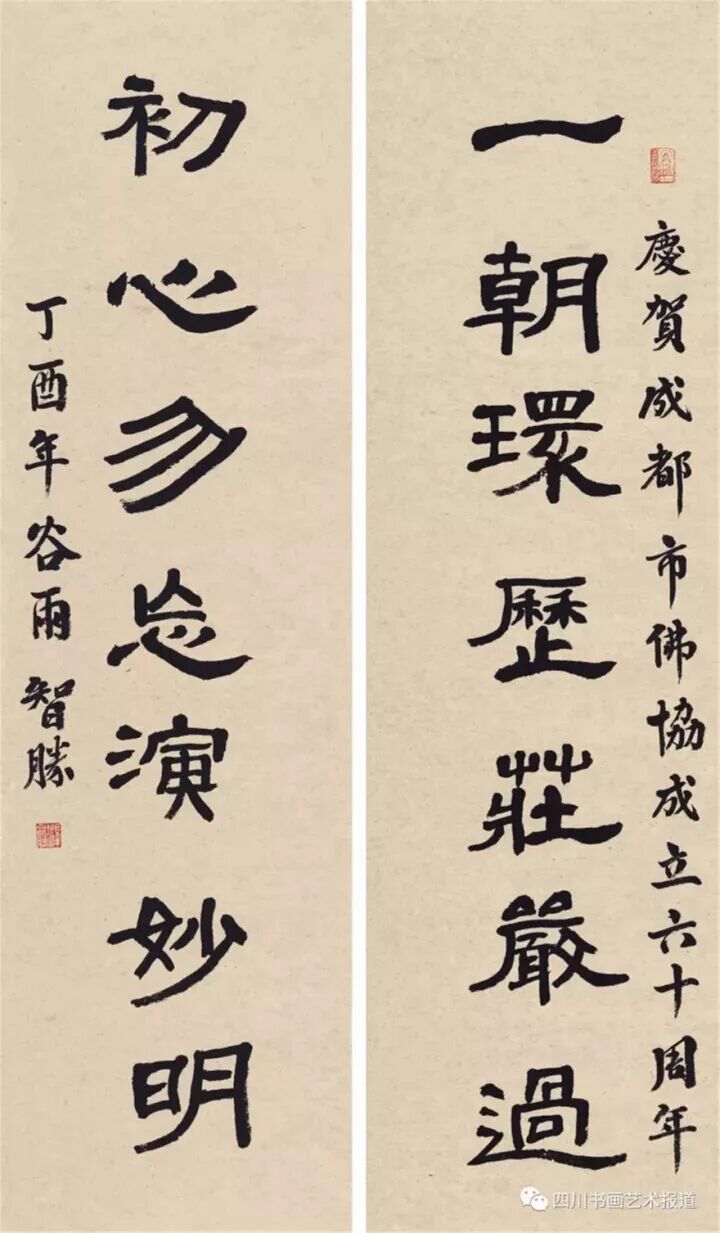 慶賀成都市佛協成立六十周年
一朝環歷莊嚴過
初心勿忘演妙明
丁酉年谷雨智勝
四川书画艺术报道